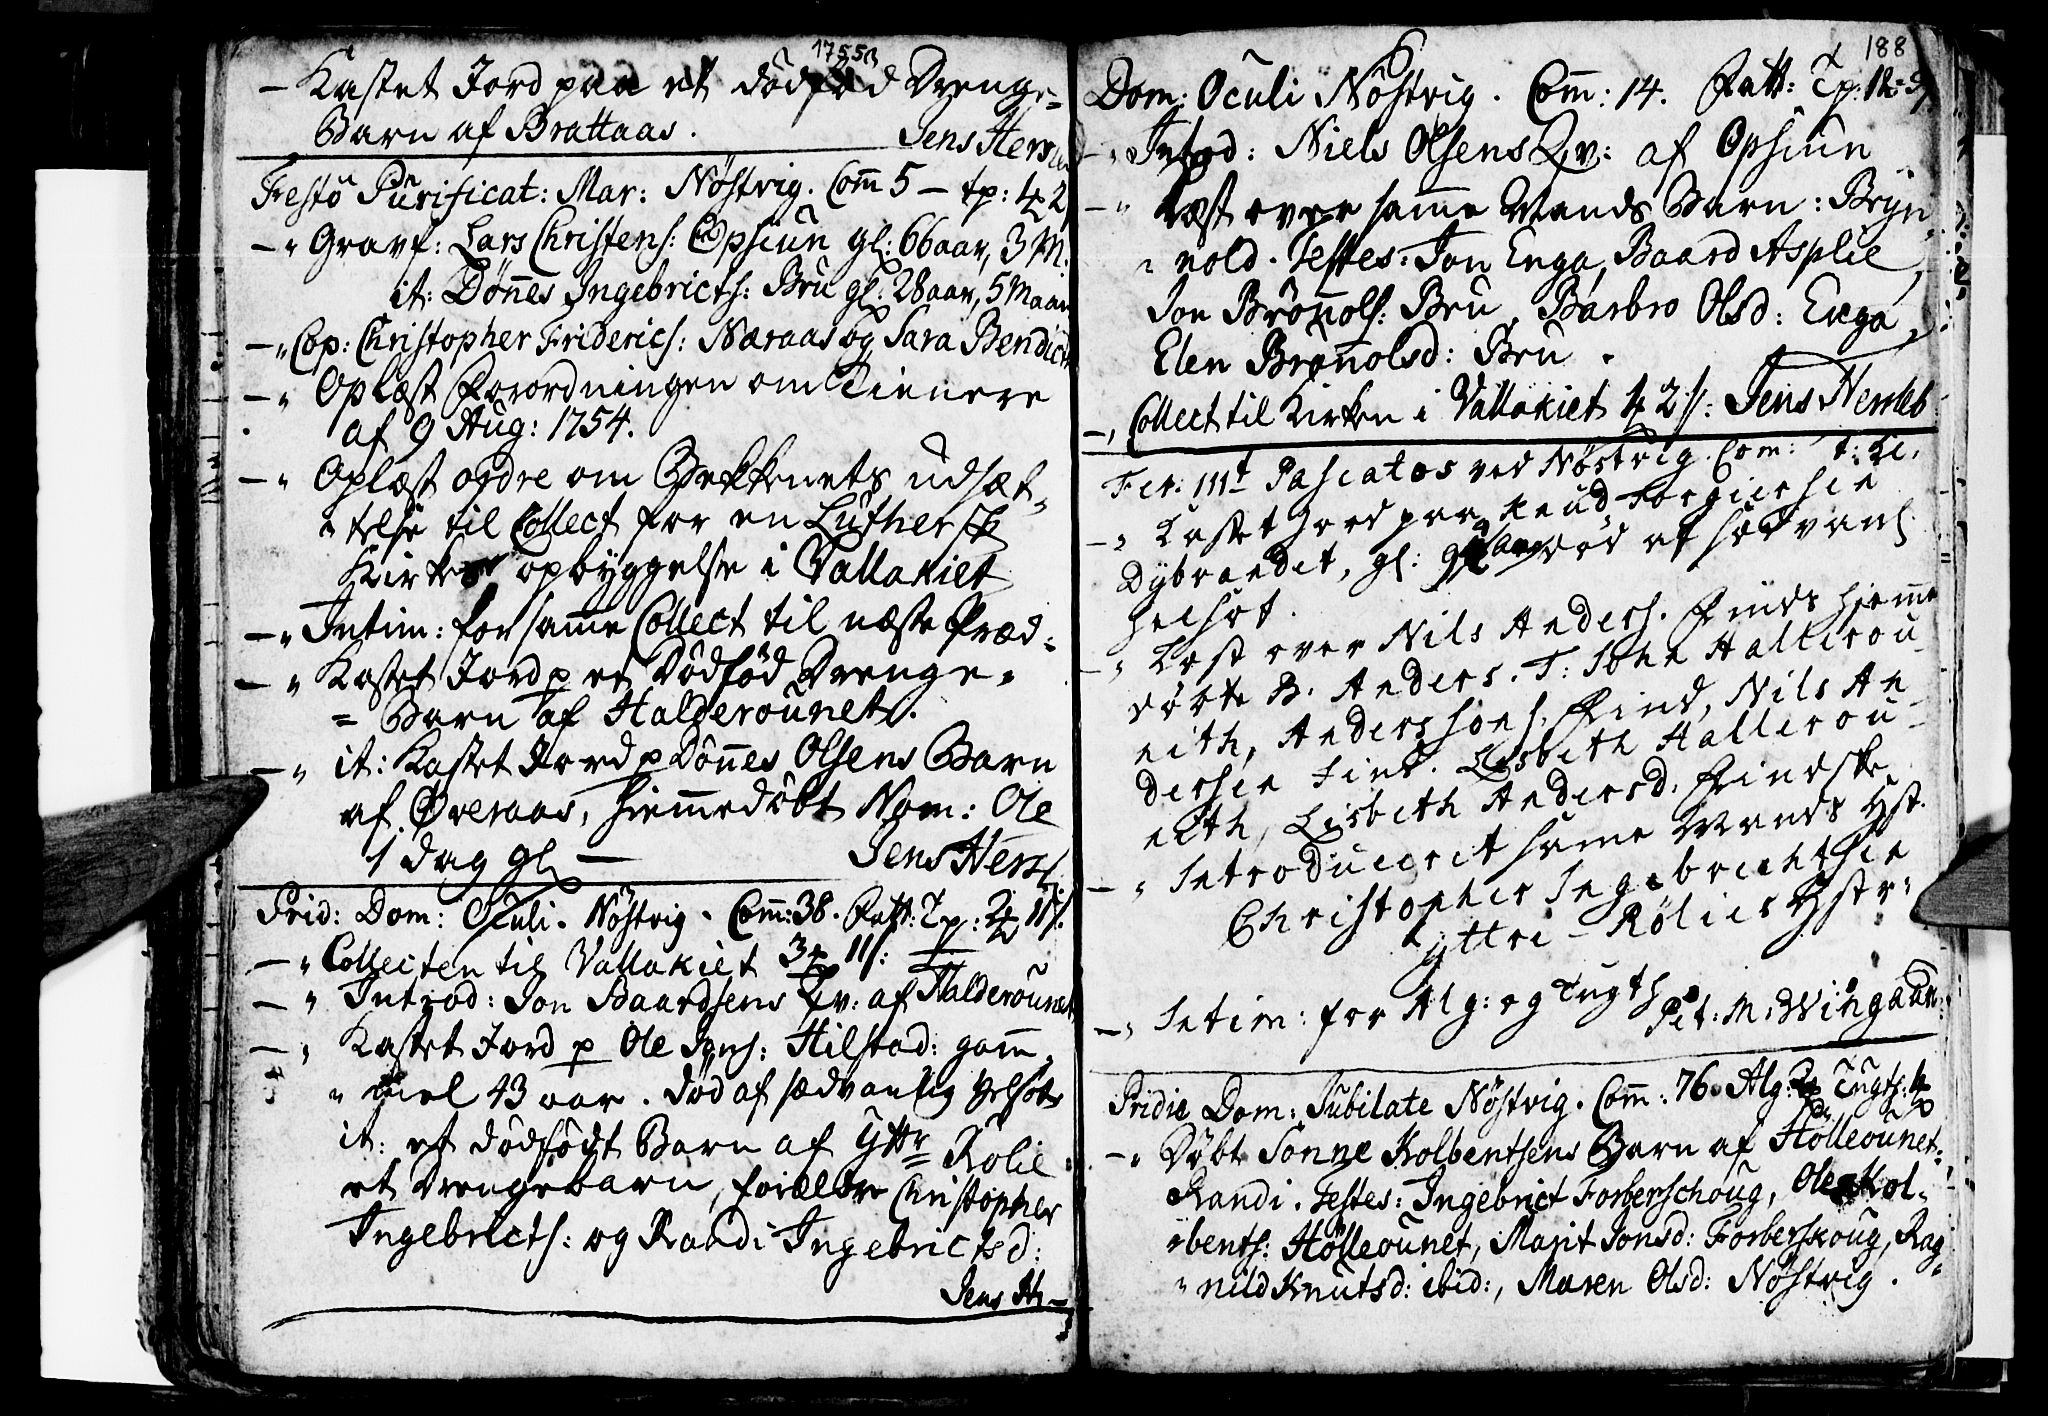 1755
– Kastet Jord paa et dödföd Drenge=
Barn af Brattaas. Jens Hersleb
Festo Purificat: Mar: Nöstvig. Com̄ 5 – tp: 2
– „ Gravf: Lars Christens: Opsiun gl: 66 aar, 3 M.
it: Dön̄es Ingebricts: Bru gl: 28 aar, 5 Maan
– „ Cop: Christopher Frideric​s: Næraas og Sara Bendict
– „ Oplæst Forordningen om Tienere
af 9 Aug: 1754.
– „ Oplæst ordre om Bekkenets udsæt=
„ telse til Collect for en Luthersk
Kirkes opbyggelse i Vallakiet
– „ Intim: for sam̄e Collect til næste Præd:
– „ Kastet Jord p et Dödföd Drenge=
= Barn af Halderounet.
– „ it: Kastet Jord p Dön̄es Olsens Barn
af Øveraas, hiemmedöbt Nom: Ole
1 dag gl – Jens Hersl.
Prid: Dom: Oculi. Nöstvig. Com̄: 38. Fatt: Tp: 11 s.
– „ Collecten til Vallakiet 3 11 s:
– „ Introd: Jon Baardsens Qv: af Halderounet
– „ Kastet Jord p Ole Jons: Hilstad: gam̄
„ mel 43 aar. död af sædvanlig Helsot
it: et dödfödt Barn af Yttr
= Rolie
et Drengebarn, forældre Christopher
Ingebricts: og Randi Ingebrictsd:
Jens H–
188
Dom: Oculi Nöstvig. Com̄: 14. Fatt: Tp: 12
– „ Introd: Niels Olsens Qv: af Opsiun
– „ Læst over sam̄e Mands Barn: Bryn
„ nold. Testes: Jon Enga, Baard Asplie,
Jon Brön̄ols: Bru, Barbro Olsd: Enga,
Elen Brön̄olsd: Bru.
– „ Collect til Kirken i Vallakiet 2 s: Jens Hersleb
Fer: III Paschatos ved Nöstvig. Com:
– „ Kastet Jord paa Knud Torgiersen
Dybrandet, gl: död af sædvanl.
Helsot.
– „ Læst over Nils Anders. Finds hjem̄e
döbte B. Anders. T: John Hallerou
nith, Anders Jons. Find, Nils An
dersen Find. Lisbeth Hallerou=
nith, Lisbeth Andersd. Findske
– „ Introduceret sam̄e Mands Hst.
Christopher Ingebrichtsen
yttre – Rølies Hstr:
– „ Intim: for Alg: og Tugth
Pet: M: Wingaan:
Pridie Dom: Jubilate Nöstvig. Com̄: 76. Alg: Tugts:
– „ Döbt Sönne Kolbentsens Barn af Hölleounet:
Randi. Testes: Ingebrict Forberschoug, Ole Kol=
„ bents: Hölleounet, Marit Jonsd: Forberskoug, Rag=
„ nild Knutsd: ibid:, Maren Olsd: Nöstvig.